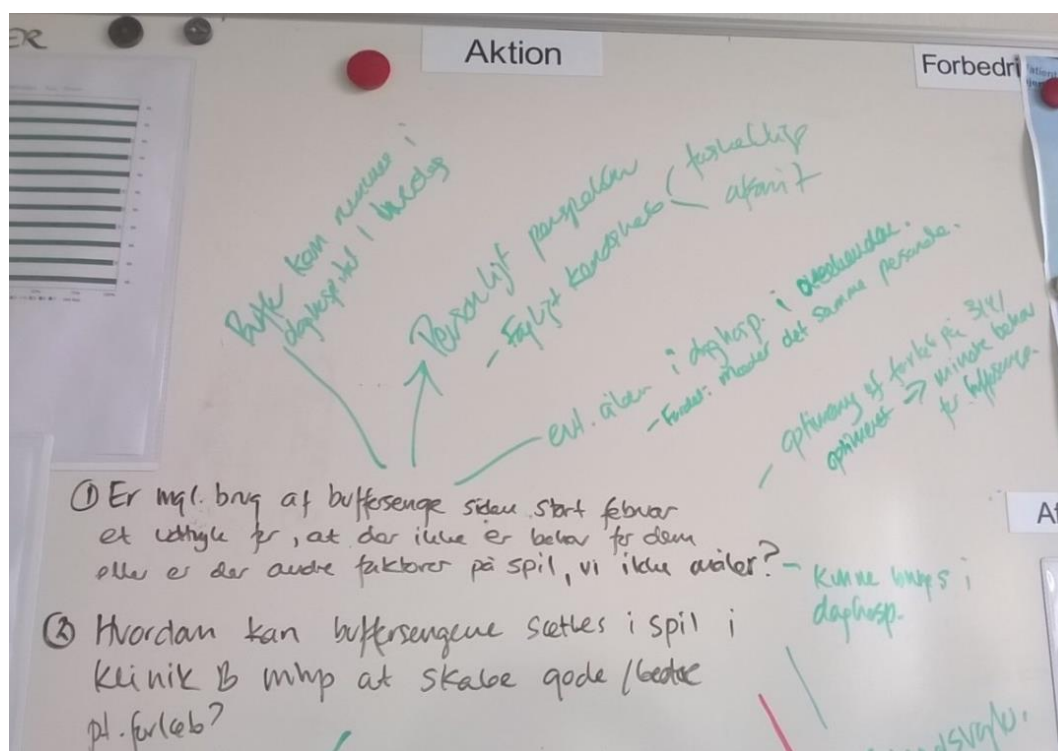 ER
Aktion
Forbedri
Buffer kan rummes i
daghospital i hverdag
Personligt perspektiv
- Fagligt kendskab
forskellig
afsnit
evt. åben i daghosp. i
- Fordel: møder det samme personale.
optimering af forløb på
optimeret → mindre behov
for buffersenge.
① Er mgl. brug af buffersenge siden start februar
et udtryk for, at der ikke er behov for dem
eller er der andre faktorer på spil, vi ikke måler?
- Kunne bruges i
daghosp.
② Hvordan kan buffersengene sættes i spil i
Klinik B mhp at skabe gode / bedre
pt. forløb?